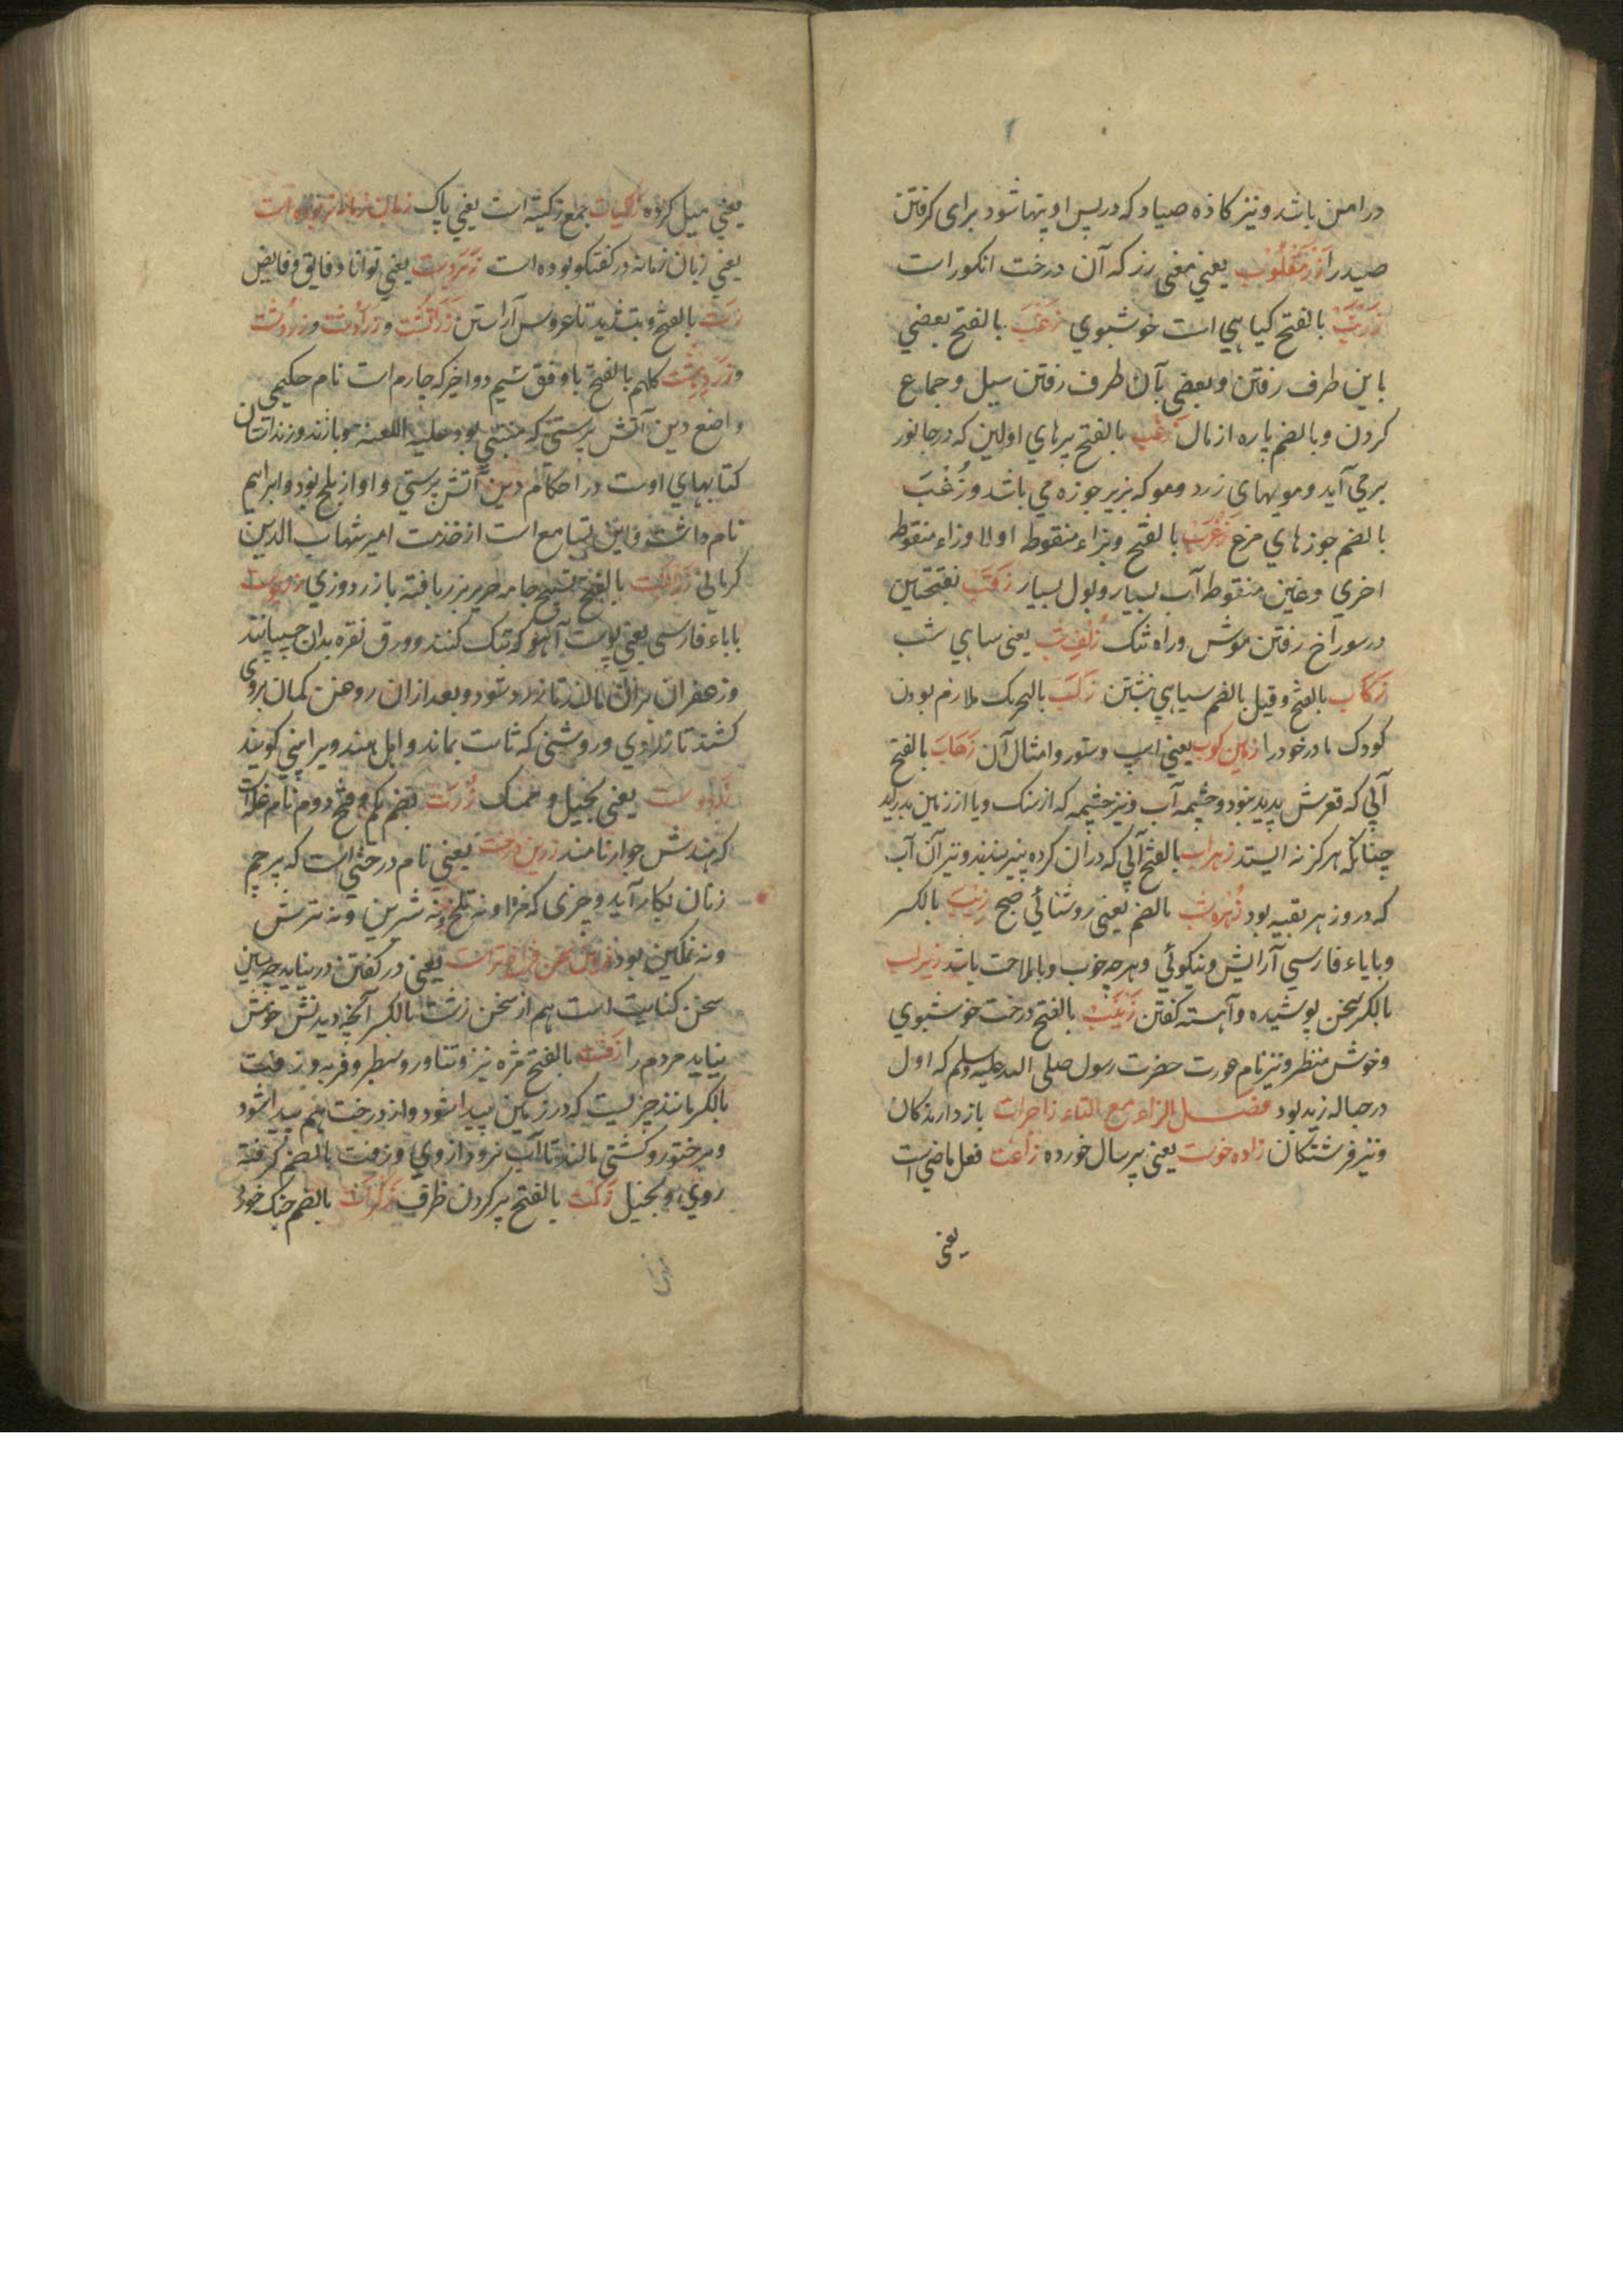 در امن باشد و نیز کاذه صیاد که در پس او پنها شود برای کرفتن
صید را زر مقلوب یعنی معنی رز که آن درخت انکور است
زرنب بالفتح کیاهی است خوشبوی زعب بالفتح بعضی
باین طرف رفتن و بعضی بآن طرف رفتن سیل و جماع
کردن و بالضم پاره از مال زغب بالفتح پرهای اولین که در جانور
برمی آید و مویهای زرد و مو که بزیر جوزه می باشد و زغب
بالضم جوزهای مرغ زغرب بالفتح و بزاء منقوطه اولا و زاء منقوطه
اخری و غین منقوطه آب بسیار و بول بسیار زقب بفتحتین
در سوراخ رفتن موش و راه تنک زلف شب یعنی سیاهی شب
زکاب بالفتح و قیل بالضم سیاهی نبشتن زکب بالتحریک ملازم بودن
کودک مادر خود را زمین کوب یعنی اسپ و ستور و امثال آن زهاب بالفتح
آبی که قعرش پدید نبود و چشمه آب و نیز چشمه که از سنک و یا از زمین بدر آید
چنانکه هرکز نه ایستد زهراب بالفتح آبی که در آن کرده پنیر بندند و نیز آن آب
که در وزهر بقیه بود زهره شب بالضم یعنی روشنائی صبح زیب بالکسر
و بایاء فارسی آرایش و نیکوئی و هرچه خوب و باملاحت باشد زیر لب
بالکسر سخن پوشیده و آهسته کفتن زینب بالفتح درخت خوشبوی
و خوش منظر و نیز نام عورت حضرت رسول صلی الله علیه وسلم که اول
در حباله زید بود فصل الزاء مع التاء زاجرات بازدارندکان
و نیز فرشتکان زاده خوست یعنی پیر سال خورده زاغت فعل ماضی است
یعنی
یعنی میل کرده زکیات جمع زکیته است یعنی پاک زبان زمانه تر بوده است
یعنی زبان زمانه در کفتکو بوده است زبردست یعنی توانا و فایق و فایض
زت بالفتح و بتشدید تا عروس آراستن زرتشت و زرادشت و زردشت
و زردهشت کلهم بالفتح باوقف شیم دو اخیر که چارم است نام حکیمی
واضع دین آتش پرستی که متنبی بود علیه اللعنه و پازند و زند استان
کتابهای اوست در احکام دین آتش پرستی و او از بلخ بود و ابراهیم
نام داشت و این تسامع است از خذمت امیر شهاب الدین
کرمانی زربفت بالفتح نسیج جامه حریر بزر بافته یا زردوزی زرپوست
باباء فارسی یعنی پوست آهو که تنک کنند و ورق نقره بدان چسپانند
و زعفران بران مالند تا زرد شود و بعد ازان روهن کمان بروی
کشند تا زردی و روشنی که ثابت بماند و اهل هند ویرا پنی کویند
زردوست یعنی بخیل و ممسک زرت بضم یکم و فتح دوم نام غله است
که هندش جوار نامند زرین درخت یعنی نام درختی است که پرچم
زنان بکار آید و چیزی که مزه او نه تلخ و نه شیرین و نه ترش
و نه نمکین بود یعنی در کفتن درنیاید چه زمین
سخن کنایت است هم از سخن زشت بالکسر آنچه دیدنش خوش
نیاید مردم را زفت بالفتح مژه تیز و تناور و سطبر و فربه و زفت
بالکسر مانند چیزیست که در زمین پیدا شود و از درخت هم پیدا شود
و بر ختور و کشتی مالند تا آب نرود از وی و زفت بالضم کرفته
روی و بخیل زکت بالفتح پر کردن ظرف زکرات بالضم خنک خورد